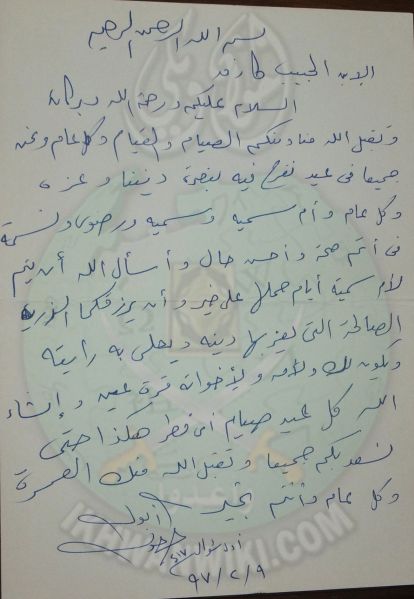 بسم الله الرحمن الرحيم
الابن الحبيب
السلام عليكم ورحمة الله وبركاته
وتقبل الله منا ومنكم الصيام والقيام وكل عام ونحن
جميعا في عيد نفرح فيه بنصرة ديننا وعزه
وكل عام وأم سمية وسمية ورضوى ونسمة
في أتم صحة وأحسن حال وأسأل الله أن يتم
لأم سمية أيام حملها على خير وأن يرزقكما الذرية
الصالحة التي يعز بها دينه ويعلى به رايته
ويكون لك ولأمه ولأخواته قرة عين وإنشاء
الله كل عيد صيام أو فطر هكذا حتى
نسعد بكم جميعا وتقبل الله منك العمرة
وكل عام وأنتم بخير أبوك
أول شوال ٤١٧
٩٧/٢/٩
IKHWANWIKI.COM
وأعدوا